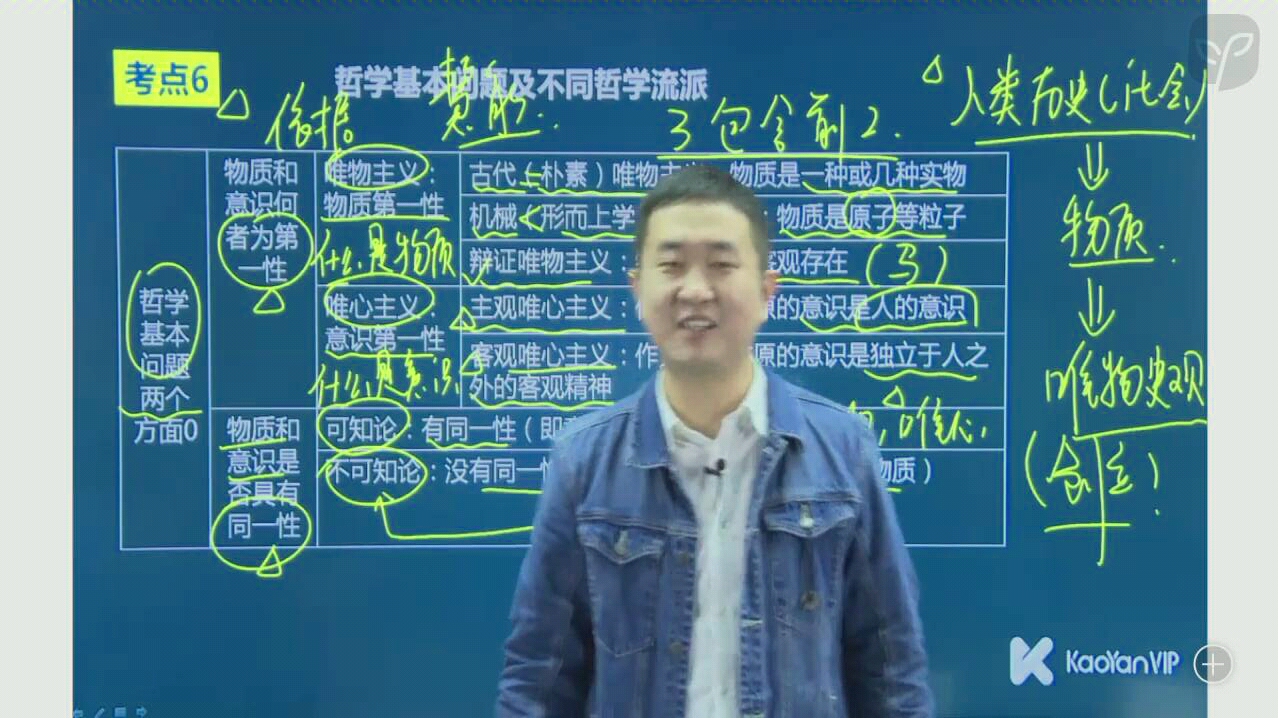 考点6
哲学基本问题及不同哲学流派
依据
3包含前2.
人类历史(社会)
物质和
意识何
者为第
一性
唯物主义：
物质第一性
什么是物质
古代（朴素）唯物主
物质是一种或几种实物
机械（形而上学
：物质是原子等粒子
辩证唯物主义：
客观存在
(马)
唯心主义：
意识第一性
什么是意识
主观唯心主义：
原的意识是人的意识
客观唯心主义：作
原的意识是独立于人之
外的客观精神
哲学
基本
问题
两个
方面0
物质和
意识是
否具有
同一性
可知论：有同一性（即
唯心.
不可知论：没有同一性
物质）
物质.
唯物史观
(创立)
KaoYanVIP